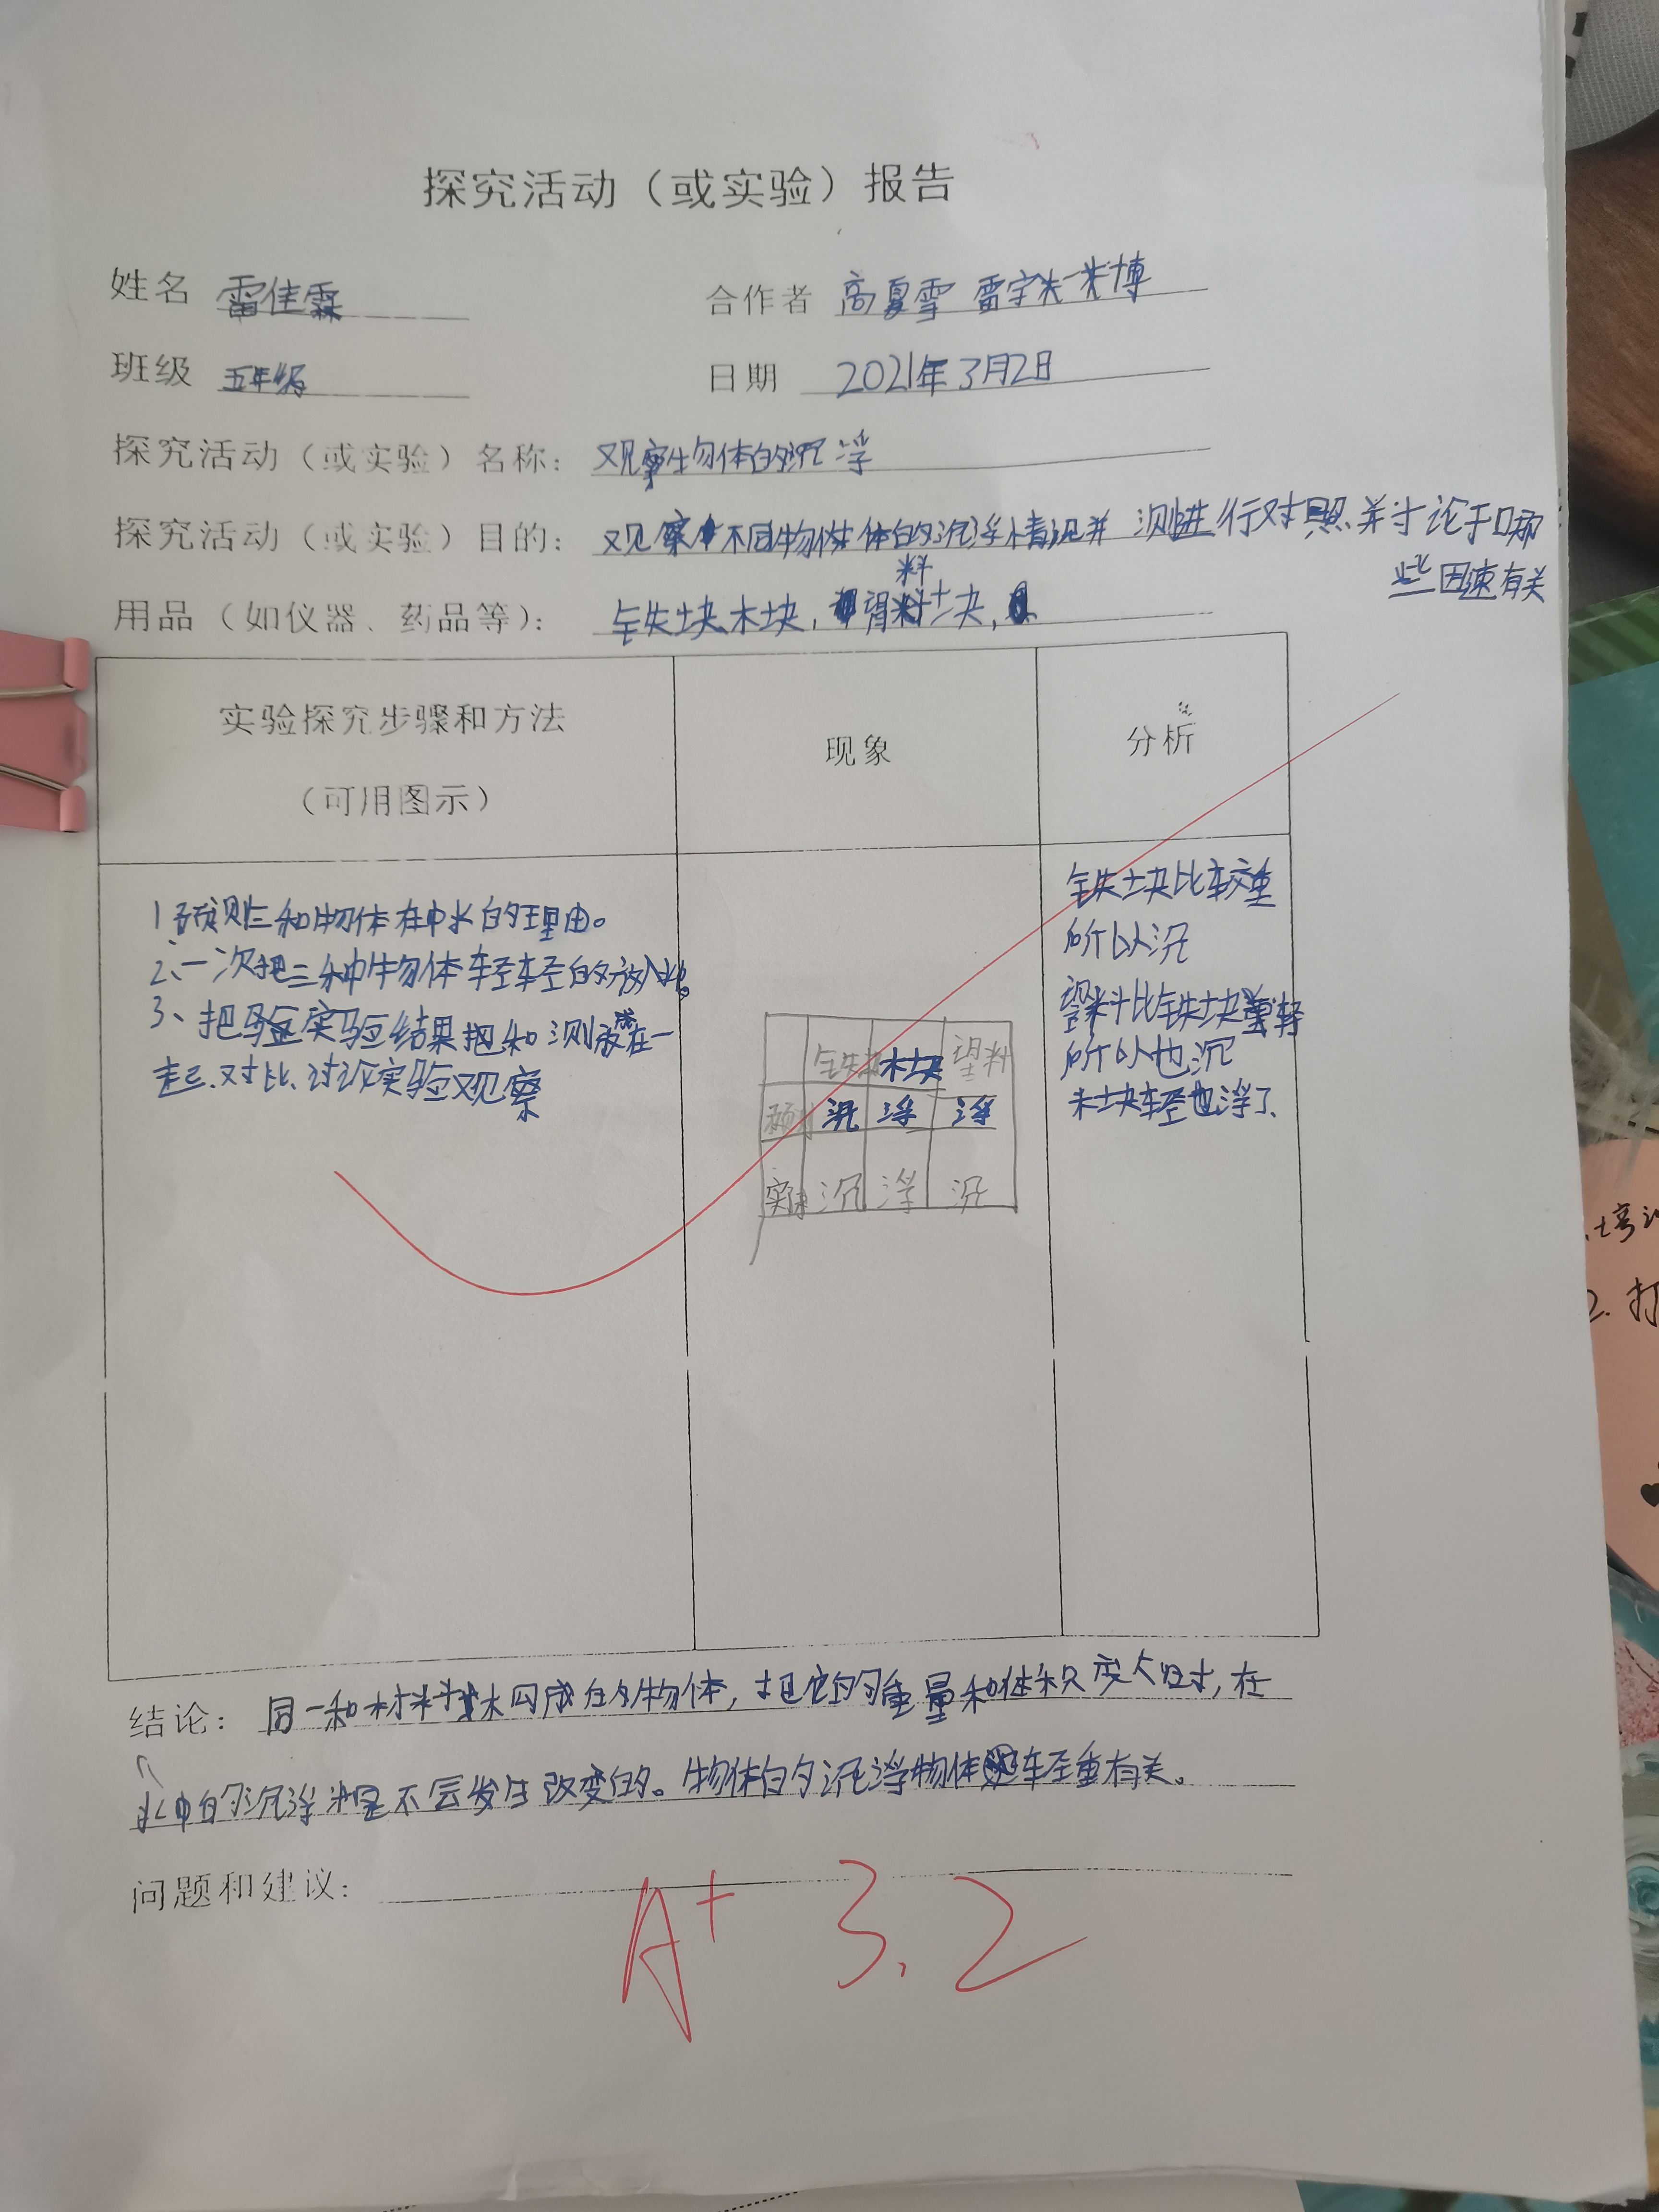 探究活动（或实验）报告
姓名 雷佳霖 合作者 高夏雪 雷宇 博
班级 五年级 日期 2021年3月2日
探究活动（或实验）名称： 观察物体的沉浮
探究活动（或实验）目的： 观察不同物体的沉浮情况并 测进行对照并讨论于哪
些因速有关
用品（如仪器、药品等）： 铁块木块，料块，
料
实验探究步骤和方法
（可用图示）
现象
分析
1预测三和物体在中水的理由。
2、一次把三种物体轻轻的放入水。
3、把验实验结果把和测放在一
起.对比、讨论实验观察
铁块 木块 塑料
预测 沉 浮 浮
实际 沉 浮 沉
铁块比较重
所以沉
塑料比铁块轻
所以也沉
木块轻也浮了、
结论： 同一和材料构成在的物体，把它的重量和体积变大时，在
水中的沉浮是不会发生改变的。物体的沉浮物体轻重有关。
问题和建议：
A+ 3.2
培训
2. 打